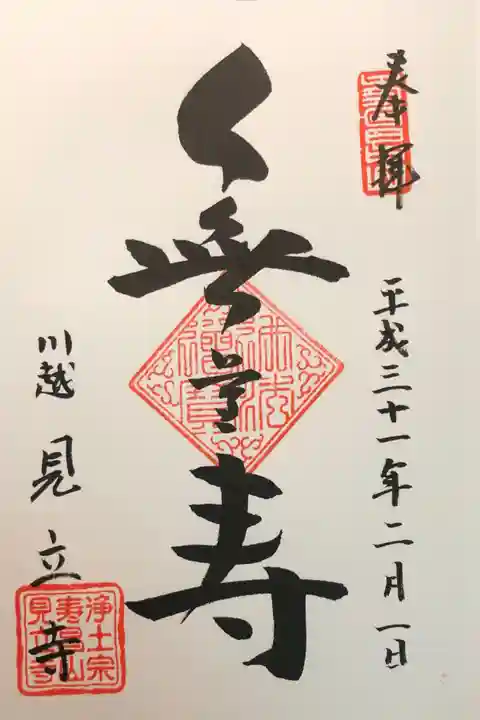 奉拝
平成三十一年二月一日
無量寿
佛法僧寳
川越 見立寺
浄土宗
寿昌山
見立寺